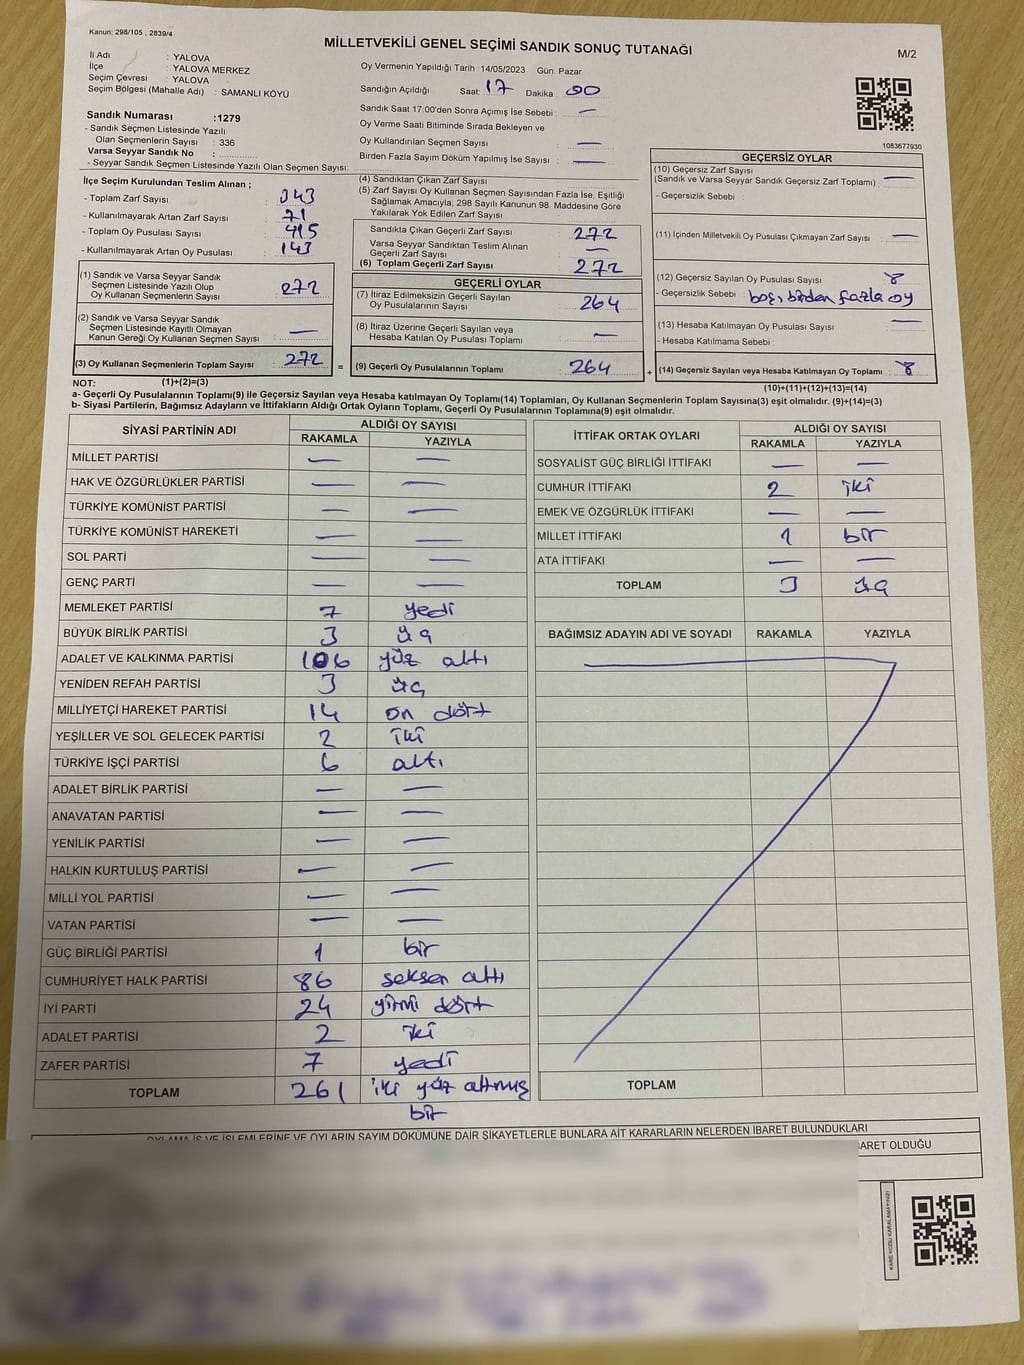 Kanun: 298/105 , 2839/4
MİLLETVEKİLİ GENEL SEÇİMİ SANDIK SONUÇ TUTANAĞI
M/2
İl Adı : YALOVA
İlçe : YALOVA MERKEZ
Seçim Çevresi : YALOVA
Seçim Bölgesi (Mahalle Adı) : SAMANLI KÖYÜ
Sandık Numarası :1279
- Sandık Seçmen Listesinde Yazılı
Olan Seçmenlerin Sayısı : 336
Varsa Seyyar Sandık No :
- Seyyar Sandık Seçmen Listesinde Yazılı Olan Seçmen Sayısı:
Oy Vermenin Yapıldığı Tarih :14/05/2023 Gün: Pazar
Sandığın Açıldığı Saat: 17 Dakika : 00
Sandık Saat 17:00'den Sonra Açımış İse Sebebi : —
Oy Verme Saati Bitiminde Sırada Bekleyen ve
Oy Kullandırılan Seçmen Sayısı : —
Birden Fazla Sayım Döküm Yapılmış İse Sayısı : —
1083677930
İlçe Seçim Kurulundan Teslim Alınan ;
- Toplam Zarf Sayısı : 343
- Kullanılmayarak Artan Zarf Sayısı : 71
- Toplam Oy Pusulası Sayısı : 415
- Kullanılmayarak Artan Oy Pusulası : 143
(1) Sandık ve Varsa Seyyar Sandık
Seçmen Listesinde Yazılı Olup
Oy Kullanan Seçmenlerin Sayısı : 272
(2) Sandık ve Varsa Seyyar Sandık
Seçmen Listesinde Kayıtlı Olmayan
Kanun Gereği Oy Kullanan Seçmen Sayısı : —
(3) Oy Kullanan Seçmenlerin Toplam Sayısı : 272 =
(1)+(2)=(3)
(4) Sandıktan Çıkan Zarf Sayısı
(5) Zarf Sayısı Oy Kullanan Seçmen Sayısından Fazla İse, Eşitliği
Sağlamak Amacıyla; 298 Sayılı Kanunun 98. Maddesine Göre
Yakılarak Yok Edilen Zarf Sayısı
Sandıkta Çıkan Geçerli Zarf Sayısı : 272
Varsa Seyyar Sandıktan Teslim Alınan
Geçerli Zarf Sayısı : —
(6) Toplam Geçerli Zarf Sayısı : 272
GEÇERLİ OYLAR
(7) İtiraz Edilmeksizin Geçerli Sayılan
Oy Pusulalarının Sayısı : 264
(8) İtiraz Üzerine Geçerli Sayılan veya
Hesaba Katılan Oy Pusulası Toplamı : —
(9) Geçerli Oy Pusulalarının Toplamı : 264 +
GEÇERSİZ OYLAR
(10) Geçersiz Zarf Sayısı
(Sandık ve Varsa Seyyar Sandık Geçersiz Zarf Toplamı) : —
- Geçersizlik Sebebi :
(11) İçinden Milletvekili Oy Pusulası Çıkmayan Zarf Sayısı : —
(12) Geçersiz Sayılan Oy Pusulası Sayısı : 8
- Geçersizlik Sebebi : boş, birden fazla oy
(13) Hesaba Katılmayan Oy Pusulası Sayısı : —
- Hesaba Katılmama Sebebi :
(14) Geçersiz Sayılan veya Hesaba Katılmayan Oy Toplamı : 8
(10)+(11)+(12)+(13)=(14)
NOT:
a- Geçerli Oy Pusulalarının Toplamı(9) ile Geçersiz Sayılan veya Hesaba katılmayan Oy Toplamı(14) Toplamları, Oy Kullanan Seçmenlerin Toplam Sayısına(3) eşit olmalıdır. (9)+(14)=(3)
b- Siyasi Partilerin, Bağımsız Adayların ve İttifakların Aldığı Ortak Oyların Toplamı, Geçerli Oy Pusulalarının Toplamına(9) eşit olmalıdır.
SİYASİ PARTİNİN ADI ALDIĞI OY SAYISI
RAKAMLA YAZIYLA
MİLLET PARTİSİ — —
HAK VE ÖZGÜRLÜKLER PARTİSİ — —
TÜRKİYE KOMÜNİST PARTİSİ — —
TÜRKİYE KOMÜNİST HAREKETİ — —
SOL PARTİ — —
GENÇ PARTİ — —
MEMLEKET PARTİSİ 7 yedi
BÜYÜK BİRLİK PARTİSİ 3 üç
ADALET VE KALKINMA PARTİSİ 106 yüz altı
YENİDEN REFAH PARTİSİ 3 üç
MİLLİYETÇİ HAREKET PARTİSİ 14 on dört
YEŞİLLER VE SOL GELECEK PARTİSİ 2 iki
TÜRKİYE İŞÇİ PARTİSİ 6 altı
ADALET BİRLİK PARTİSİ — —
ANAVATAN PARTİSİ — —
YENİLİK PARTİSİ — —
HALKIN KURTULUŞ PARTİSİ — —
MİLLİ YOL PARTİSİ — —
VATAN PARTİSİ — —
GÜÇ BİRLİĞİ PARTİSİ 1 bir
CUMHURİYET HALK PARTİSİ 86 seksen altı
İYİ PARTİ 24 yirmi dört
ADALET PARTİSİ 2 iki
ZAFER PARTİSİ 7 yedi
TOPLAM 261 iki yüz altmış
bir
İTTİFAK ORTAK OYLARI ALDIĞI OY SAYISI
RAKAMLA YAZIYLA
SOSYALİST GÜÇ BİRLİĞİ İTTİFAKI — —
CUMHUR İTTİFAKI 2 iki
EMEK VE ÖZGÜRLÜK İTTİFAKI — —
MİLLET İTTİFAKI 1 bir
ATA İTTİFAKI — —
TOPLAM 3 üç
BAĞIMSIZ ADAYIN ADI VE SOYADI RAKAMLA YAZIYLA
TOPLAM
OYLAMA İŞ VE İŞLEMLERİNE VE OYLARIN SAYIM DÖKÜMÜNE DAİR ŞİKAYETLERLE BUNLARA AİT KARARLARIN NELERDEN İBARET BULUNDUKLARI
BARET OLDUĞU
KARE KODU KARALAMAYINIZ!